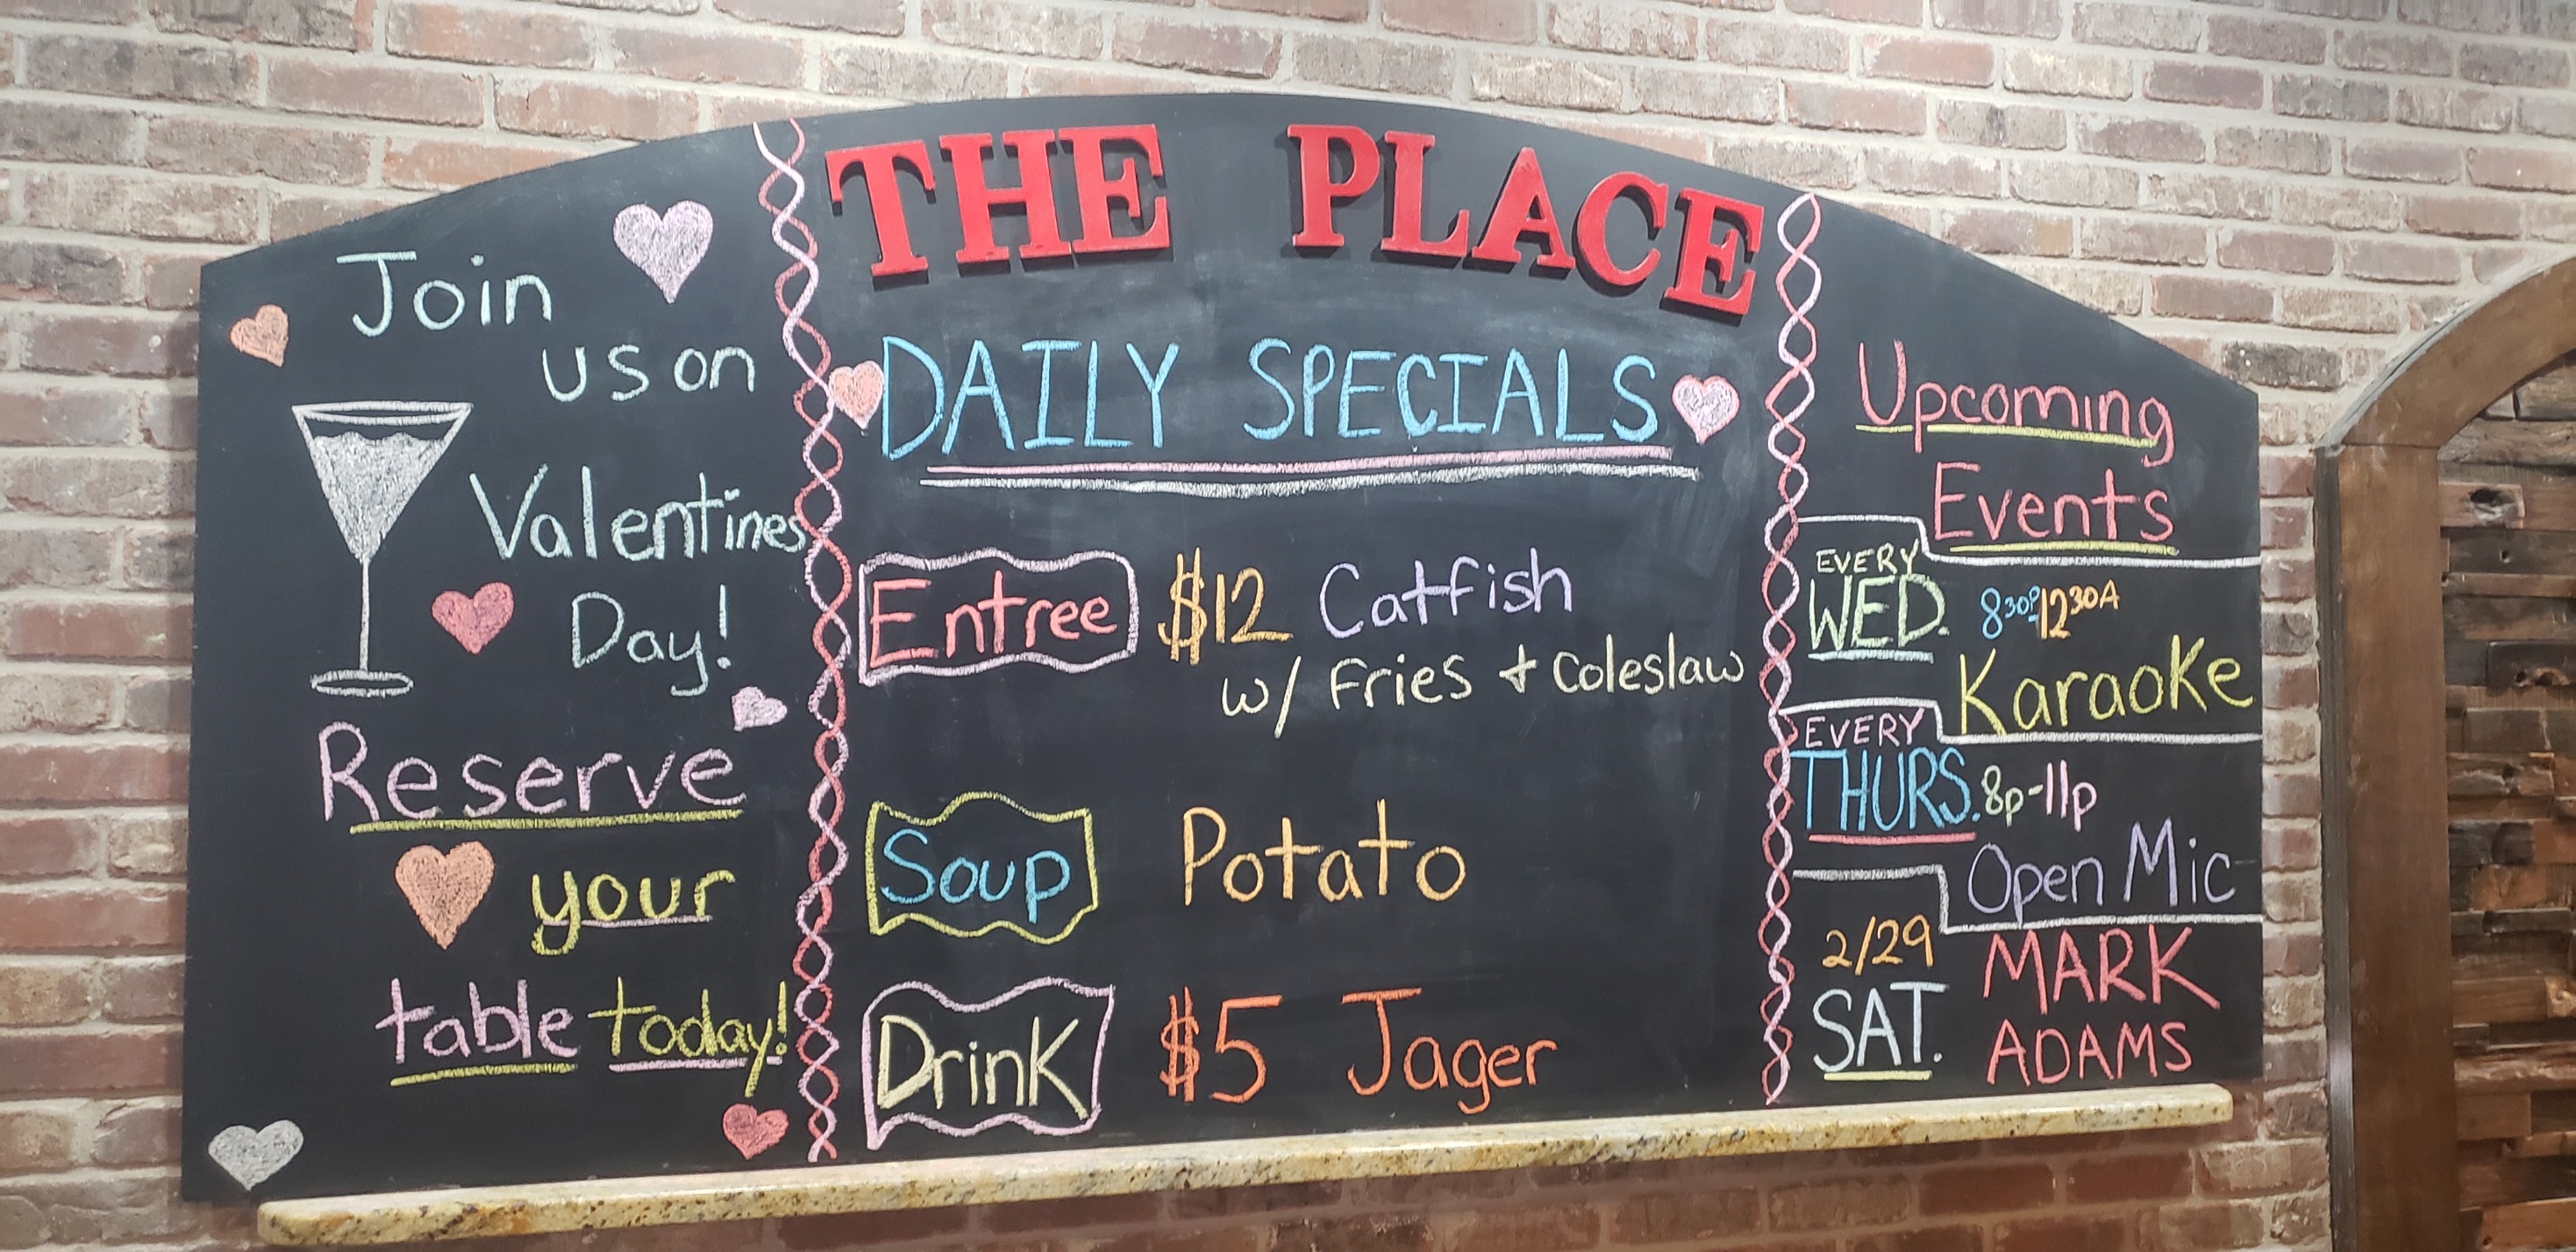 THE PLACE
Join
us on
Valentines
Day!
Reserve
your
table today!
DAILY SPECIALS
Entree $12 Catfish
w/ Fries + Coleslaw
Soup Potato
Drink $5 Jager
Upcoming
Events
EVERY
WED. 830P-1230A
Karaoke
EVERY
THURS. 8p-11p
Open Mic
2/29 MARK
SAT. ADAMS